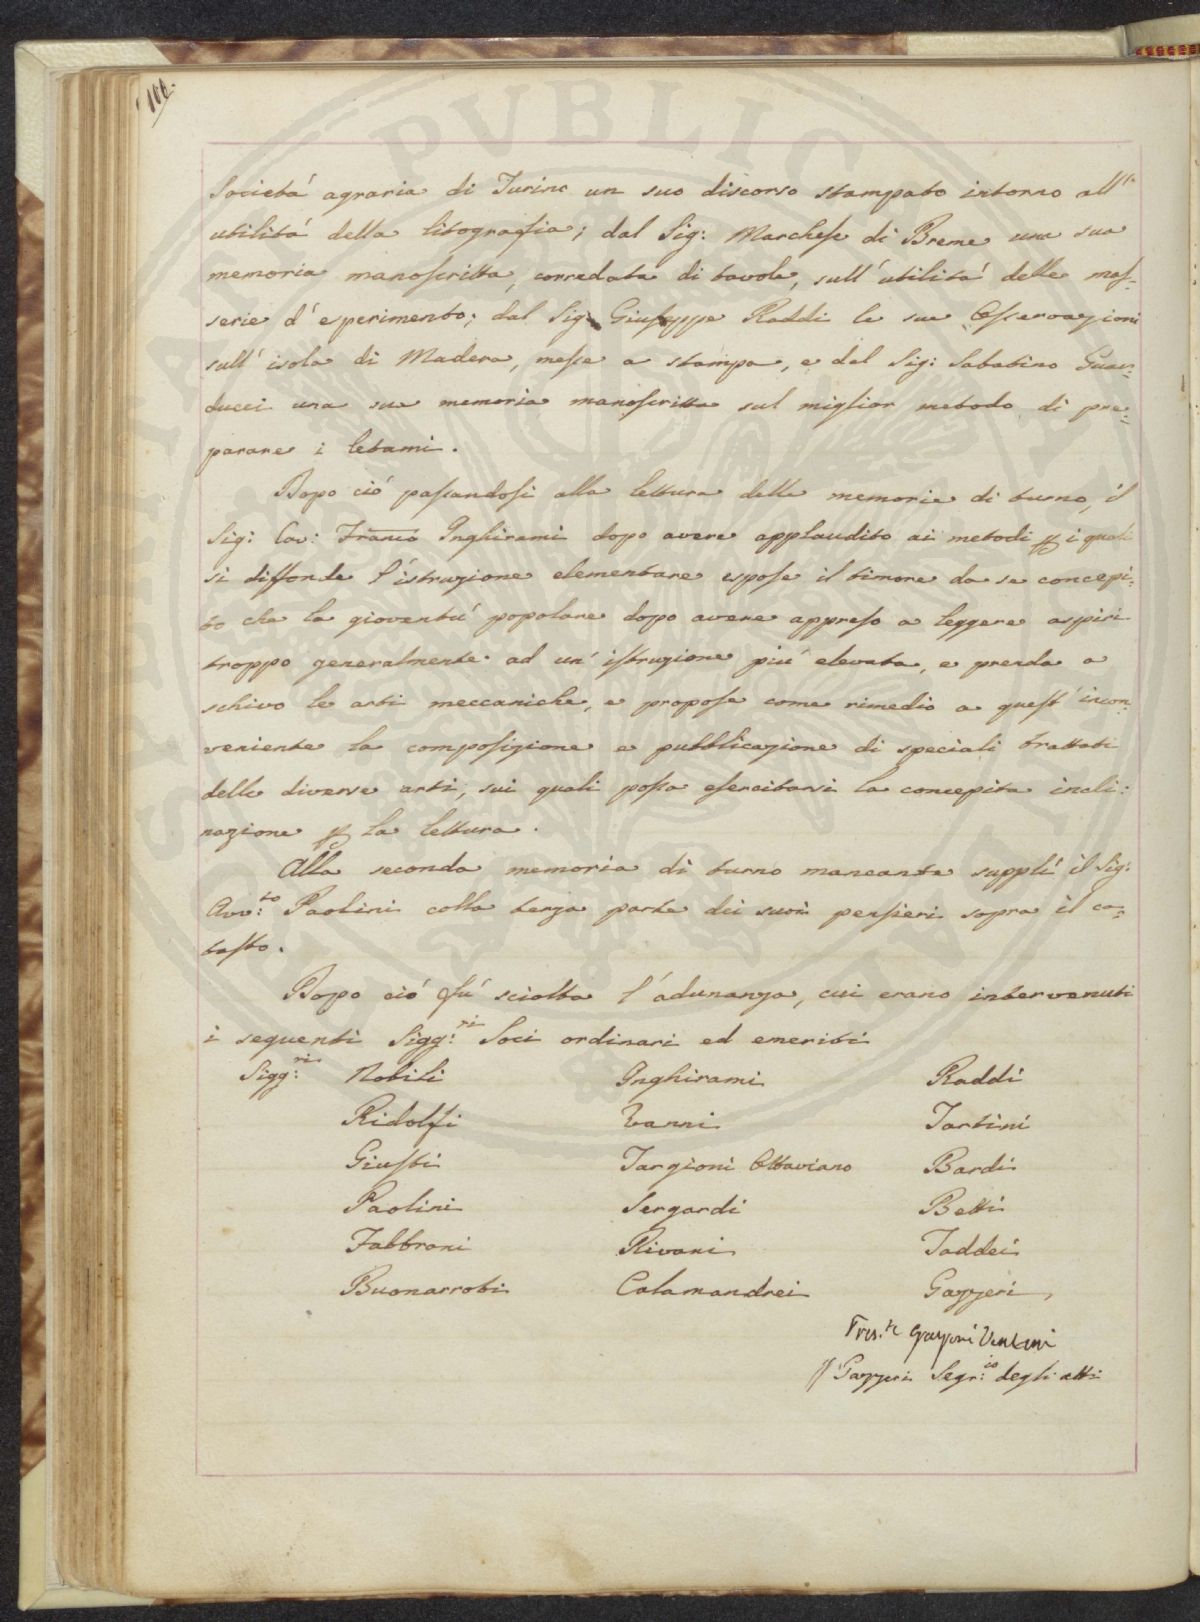 106.
Società agraria di Turino un suo discorso stampato intorno all'
utilità della litografia; dal Sig: Marchese di Breme una sua
memoria manoscritta, corredata di tavole, sull'utilità delle mas=
serie d'esperimento; dal Sig: Giuseppe Raddi le sue Osservazioni
sull'isola di Madera, messe a stampa, e dal Sig: Sabatino Guar=
ducci una sua memoria manoscritta sul miglior metodo di pre=
parare i letami.
Dopo ciò passandosi alla lettura delle memorie di turno, il
Sig: Cav: Franco Inghirami dopo avere applaudito ai metodi p i quali
si diffonde l'istruzione elementare espose il timore da se concepi=
to che la gioventù popolare dopo avere appreso a leggere aspiri
troppo generalmente ad un'istruzione più elevata, e prenda a
schivo le arti meccaniche, e propose come rimedio a quest'incon=
veniente la composizione e pubblicazione di speciali trattati
delle diverse arti, sui quali possa esercitarsi la concepita incli=
nazione p la lettura.
Alla seconda memoria di turno mancante supplì il Sig:
Avv:to Paolini colla terza parte dei suoi pensieri sopra il ca=
tasto.
Dopo ciò fù sciolta l'adunanza, cui erano intervenuti
i seguenti Sigg:ri Soci ordinari ed emeriti
Sigg:ri Nobili Inghirami Raddi
Ridolfi Vanni Tartini
Giusti Targioni Ottaviano Bardi
Paolini Sergardi Betti
Fabbroni Rivani Taddei
Buonarroti Calamandrei Gazzeri,
Pres.te Garzoni Venturi
Gazzeri Segr:io degli atti
PUBLICA